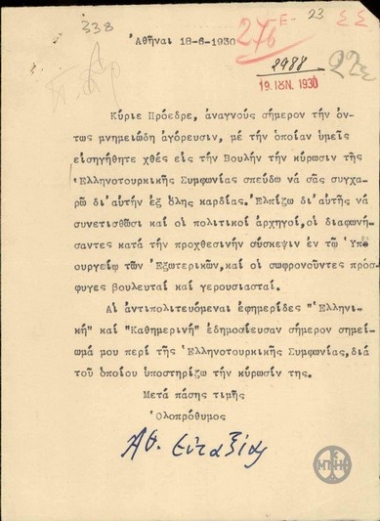 338
276
Ε-
23
Σ Σ
Ἀθῆναι 18-6-1930
2988
19. ΙΟΥΝ. 1930
Κύριε Πρόεδρε, ἀναγνούς σήμερον τήν ὄν-
τως μνημειώδη ἀγόρευσιν, μέ τήν ὁποίαν ὑμεῖς
εἰσηγήθητε χθές εἰς τήν Βουλήν τήν κύρωσιν τῆς
Ἑλληνοτουρκικῆς Συμφωνίας σπεύδω νά σᾶς συγχα-
ρῶ δι'αὐτήν ἐξ ὅλης καρδίας. Ἐλπίζω δι'αὐτῆς νά
συνετισθῶσι καί οἱ πολιτικοί ἀρχηγοί, οἱ διαφωνή-
σαντες κατά τήν προχθεσινήν σύσκεψιν ἐν τῷ Ὑπο-
υργείῳ τῶν Ἐξωτερικῶν, καί οἱ σωφρονοῦντες πρόσ-
φυγες βουλευταί καί γερουσιασταί.
Αἱ ἀντιπολιτευόμεναι ἐφημερίδες "Ἑλληνι-
κή" καί "Καθημερινή" ἐδημοσίευσαν σήμερον σημεί-
ωμά μου περί τῆς Ἑλληνοτουρκικῆς Συμφωνίας, διά
τοῦ ὁποίου ὑποστηρίζω τήν κύρωσίν της.
Μετά πάσης τιμῆς
Ὁλοπρόθυμος
Αθ. Εὐταξίας